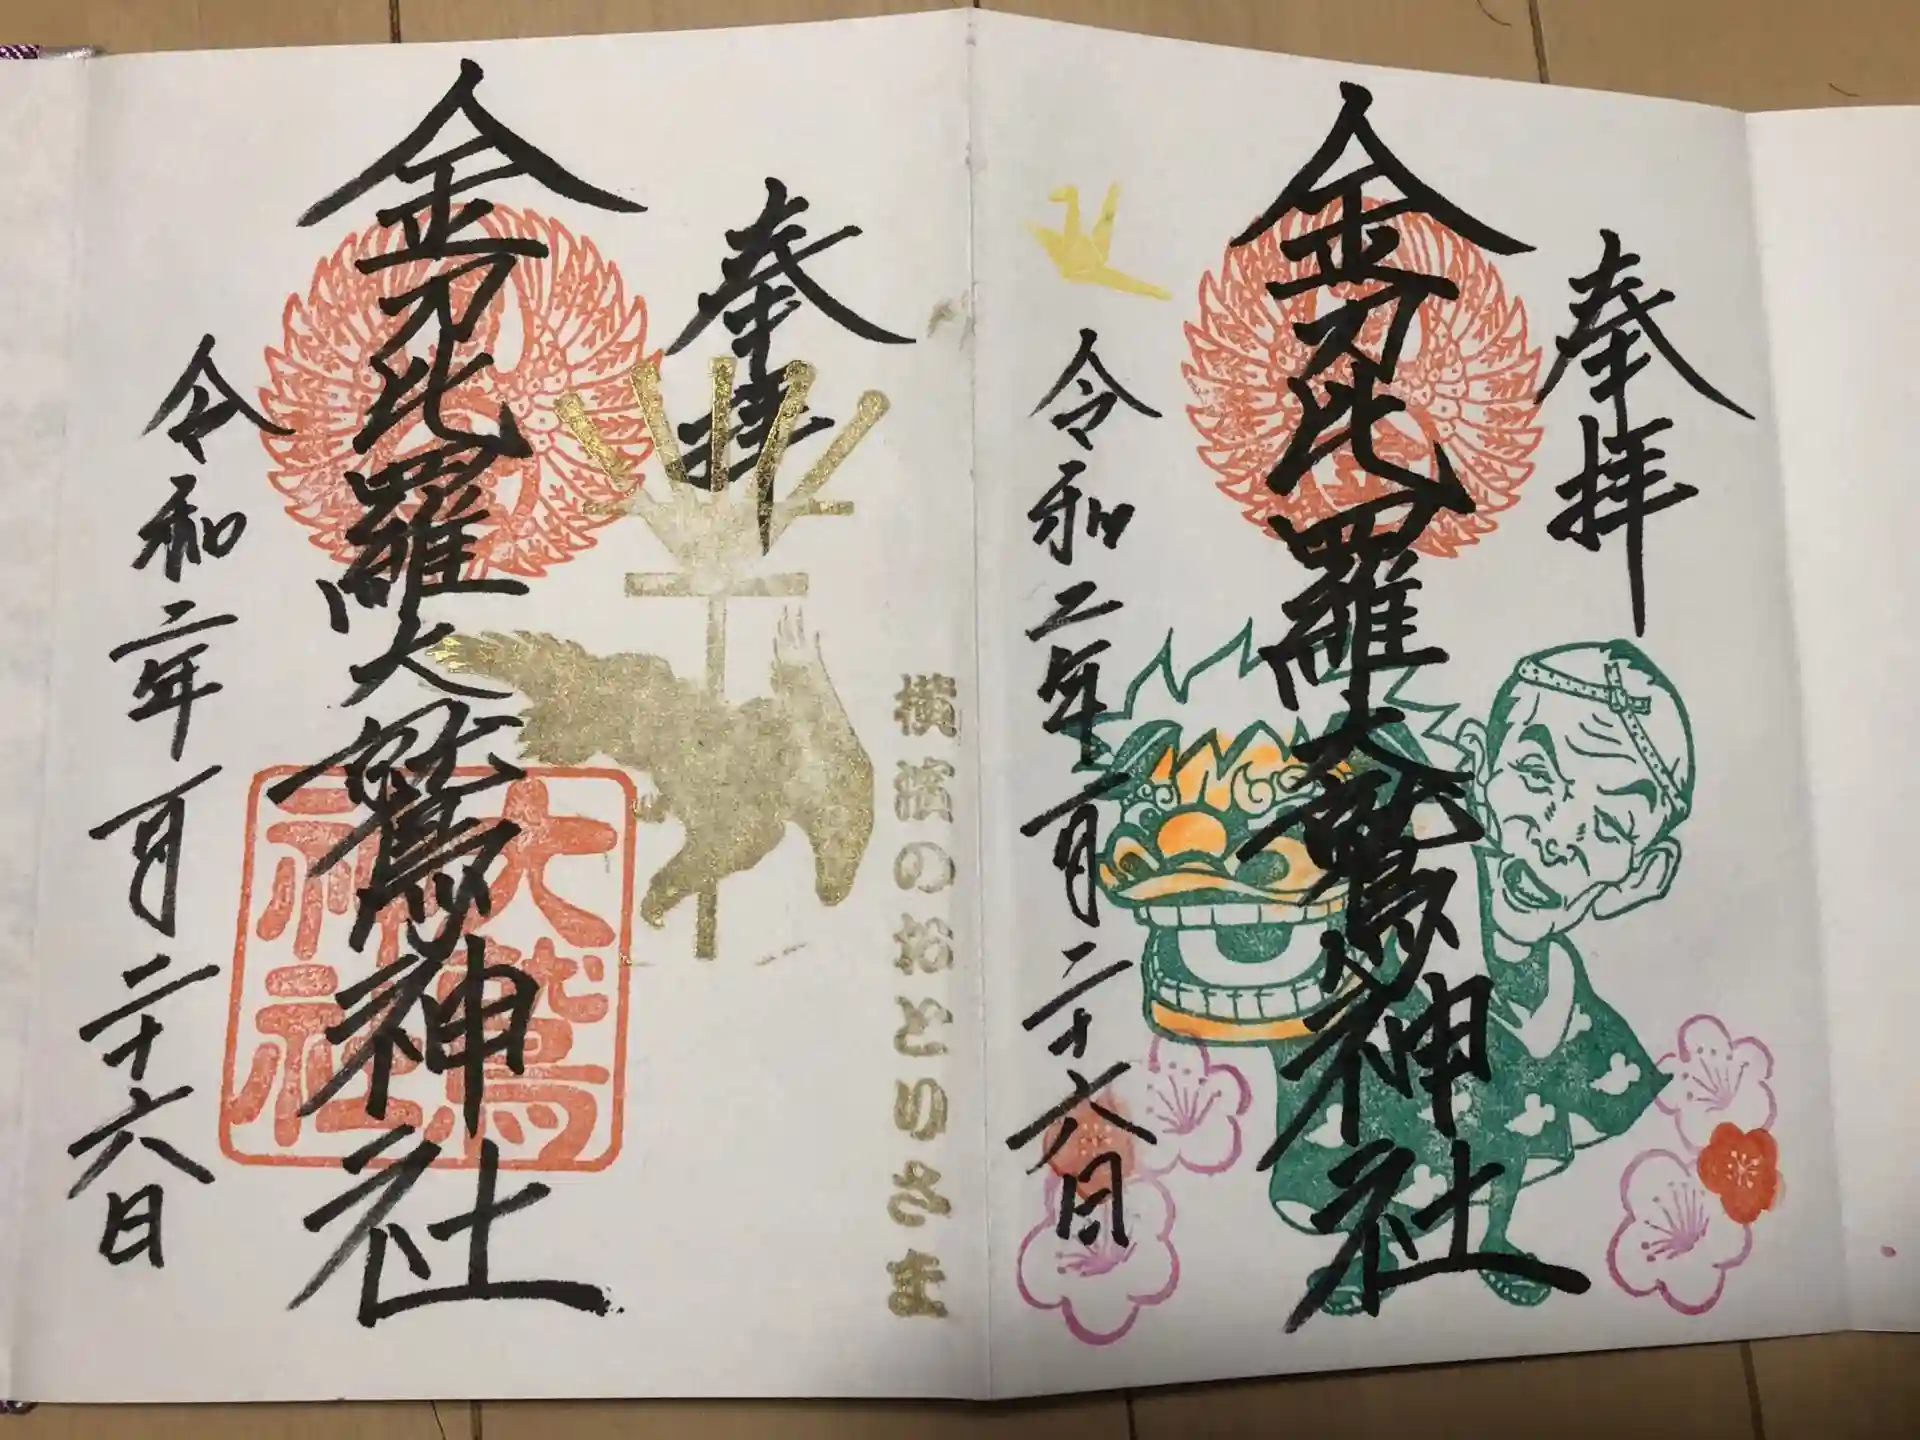 奉拝
金刀比羅大鷲神社
令和二年一月二十六日
横濱のおとりさま
奉拝
金刀比羅大鷲神社
大鷲
神社
令和二年一月二十六日